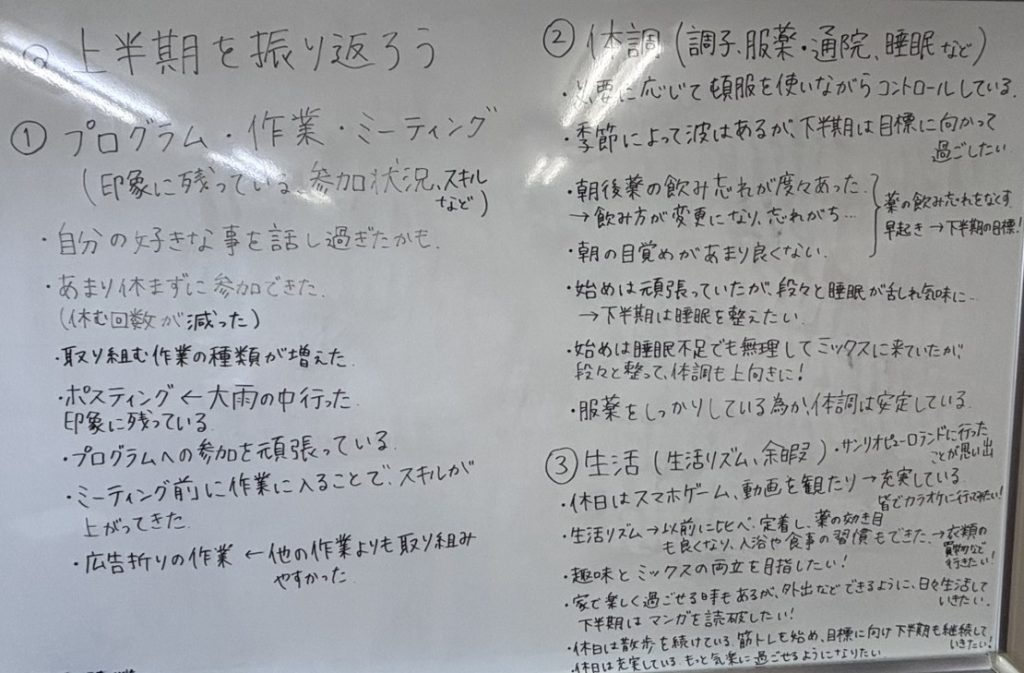 上半期を振り返ろう
① プログラム・作業・ミーティング
(印象に残っている、参加状況、スキル
など)
・自分の好きな事を話し過ぎたかも.
・あまり休まずに参加できた.
(休む回数が減った)
・取り組む作業の種類が増えた.
・ポスティング ← 大雨の中行った.
印象に残っている.
・プログラムへの参加を頑張っている.
・ミーティング前に作業に入ることで、スキルが
上がってきた.
・広告折りの作業 ← 他の作業よりも取り組み
やすかった.
② 体調 (調子、服薬・通院、睡眠など)
・必要に応じて頓服を使いながらコントロールしている.
・季節によって波はあるが、下半期は目標に向かって
過ごしたい.
・朝後薬の飲み忘れが度々あった.
→飲み方が変更になり、忘れがち…
・朝の目覚めがあまり良くない.
薬の飲み忘れをなくす
早起き → 下半期の目標!
・始めは頑張っていたが、段々と睡眠が乱れ気味に…
→下半期は睡眠を整えたい.
・始めは睡眠不足でも無理してミックスに来ていたが、
段々と整って、体調も上向きに!
・服薬をしっかりしている為か、体調は安定している.
③ 生活 (生活リズム、余暇)
・サンリオピューロランドに行った
ことが思い出
・休日はスマホゲーム、動画を観たり → 充実している.
皆でカラオケに行ってみたい!
・生活リズム → 以前に比べ、定着し、薬の効き目
も良くなり、入浴や食事の習慣もできた. → 衣類の
買物など
行きたい!
・趣味とミックスの両立を目指したい!
・家で楽しく過ごせる時もあるが、外出などできるように、日々生活して
いきたい.
下半期はマンガを読破したい!
・休日は散歩を続けている. 筋トレも始め、目標に向け下半期も継続して
いきたい!
・休日は充実している. もっと気楽に過ごせるようになりたい